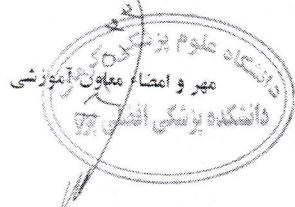 دانشگاه علوم پزشکی کرمان
مهر و امضاء معاون آموزشی
دانشکده پزشکی افضلی پور